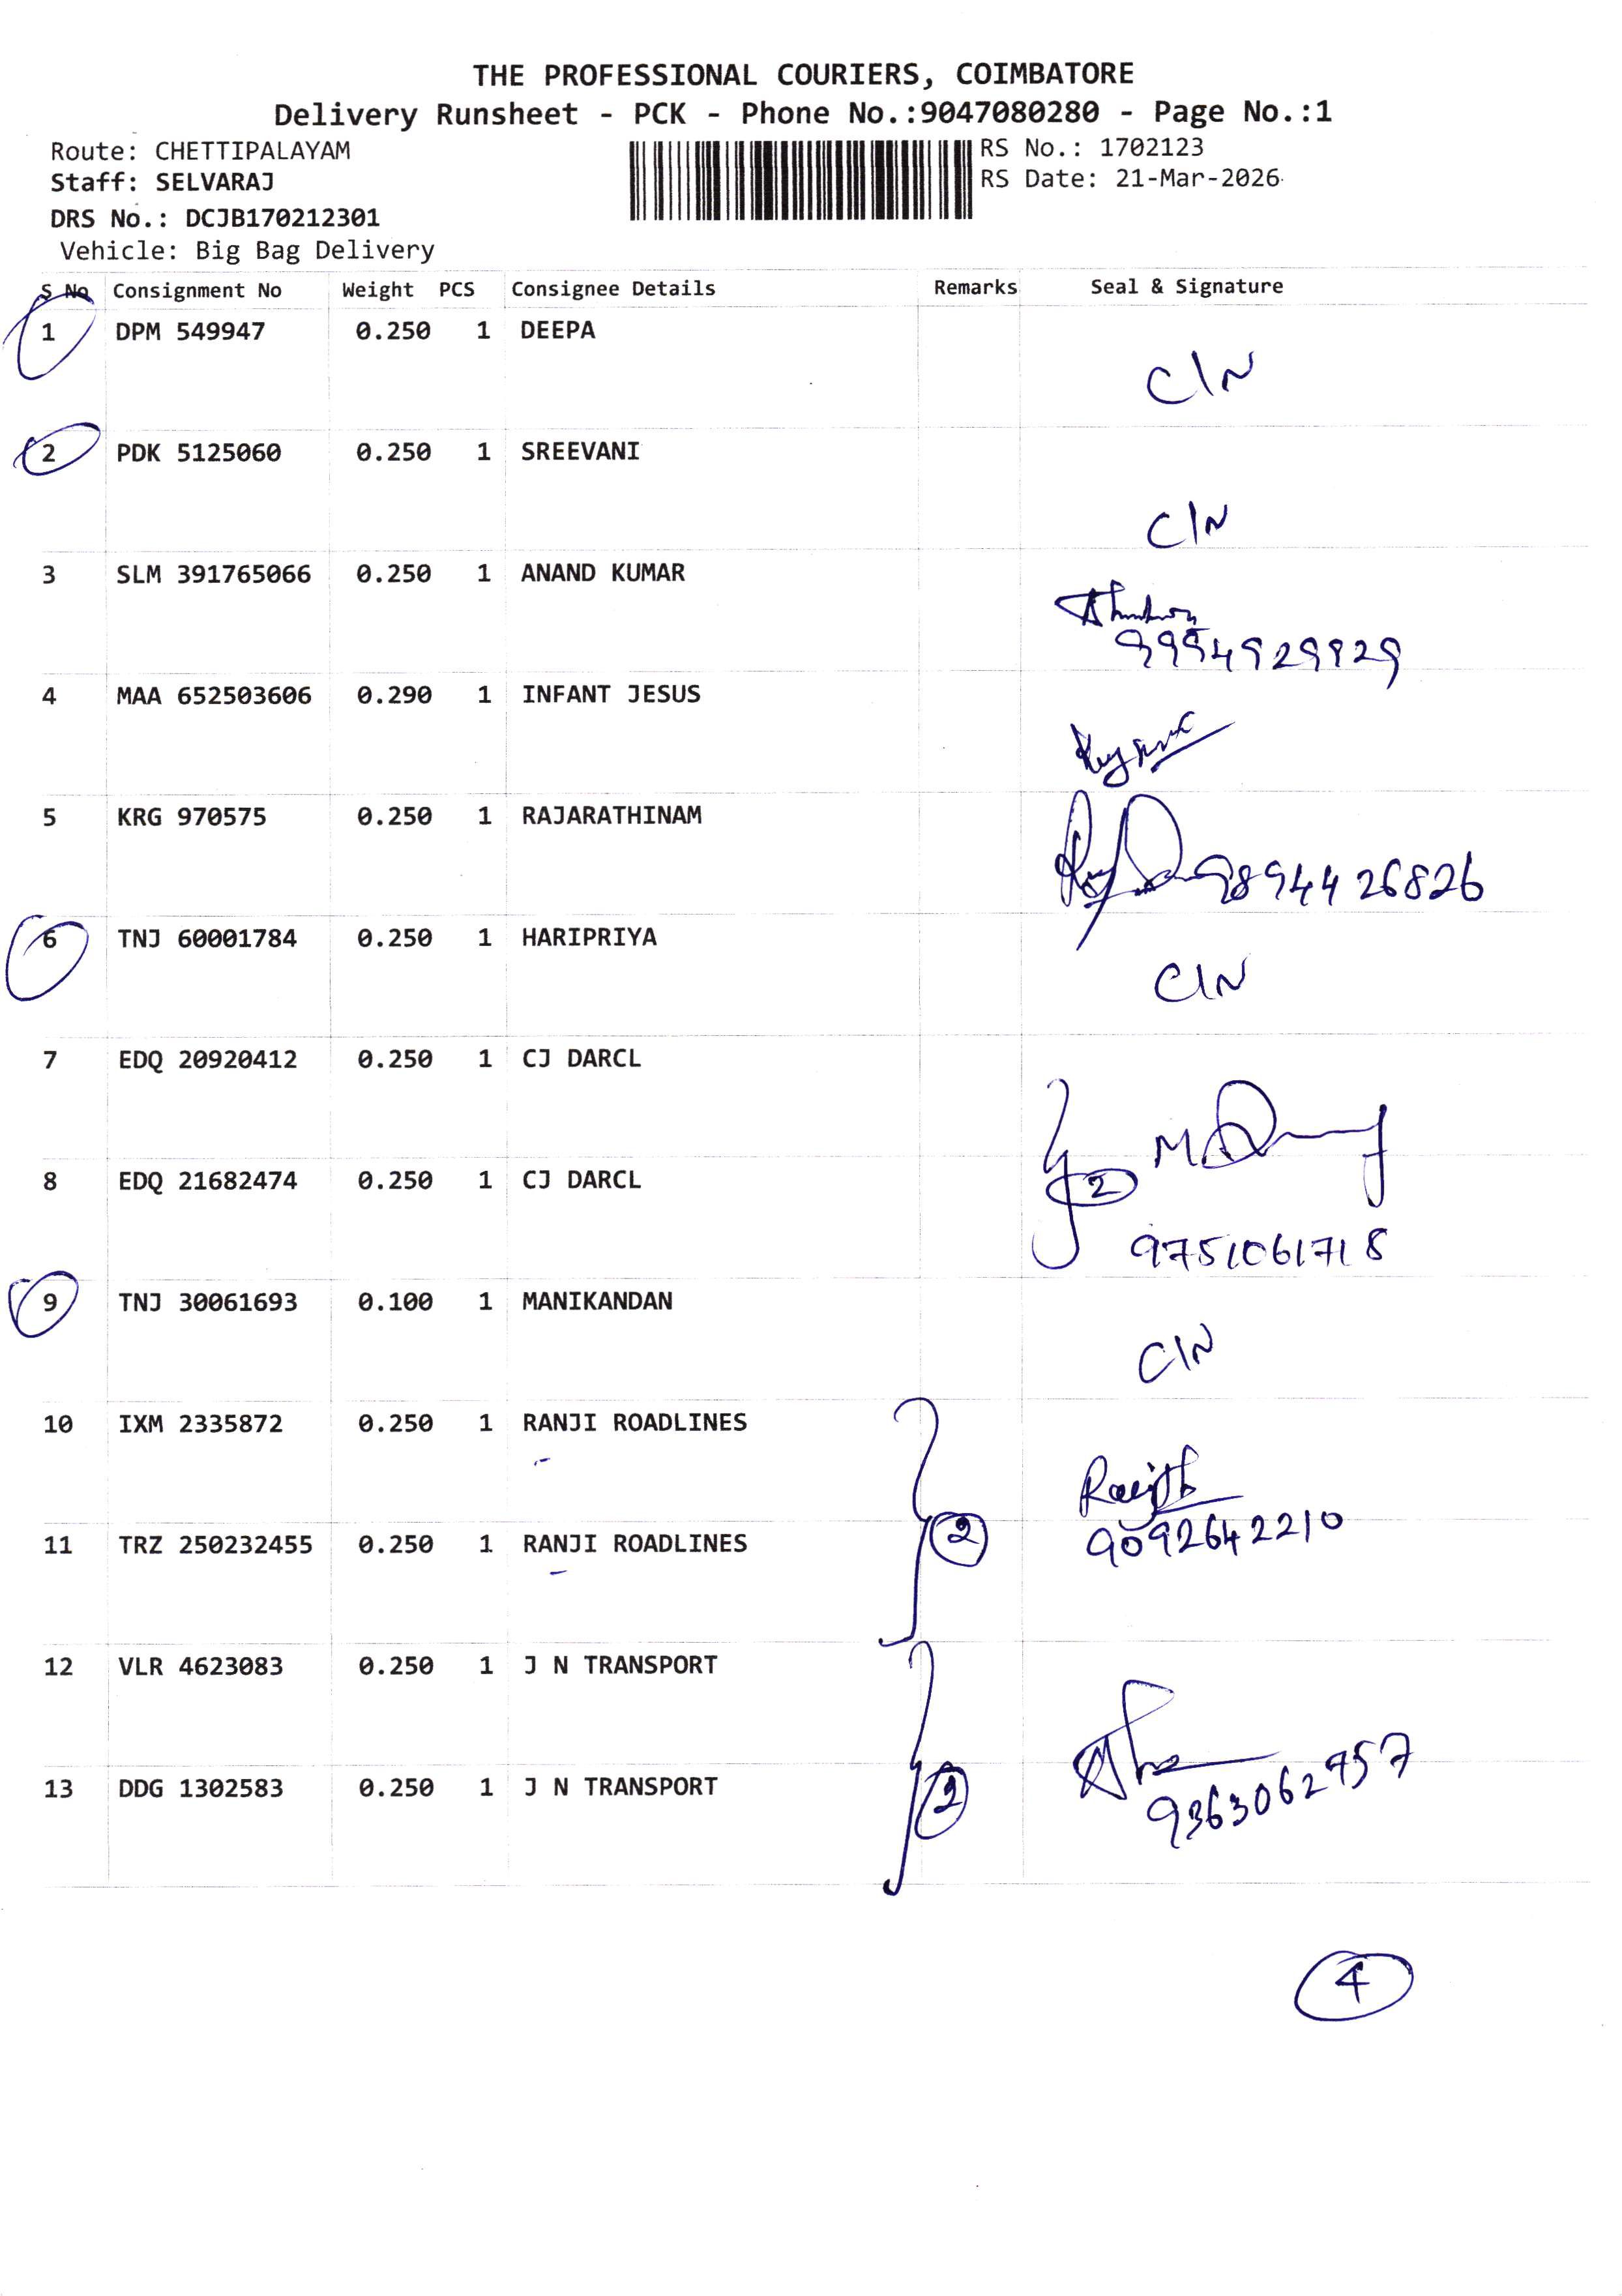 THE PROFESSIONAL COURIERS, COIMBATORE
Delivery Runsheet - PCK - Phone No.:9047080280 - Page No.:1
Route: CHETTIPALAYAM
Staff: SELVARAJ
DRS No.: DCJB170212301
Vehicle: Big Bag Delivery
RS No.: 1702123
RS Date: 21-Mar-2026
S No Consignment No Weight PCS Consignee Details Remarks Seal & Signature
1 DPM 549947 0.250 1 DEEPA
C/N
2 PDK 5125060 0.250 1 SREEVANI
C/N
3 SLM 391765066 0.250 1 ANAND KUMAR
4 MAA 652503606 0.290 1 INFANT JESUS
5 KRG 970575 0.250 1 RAJARATHINAM
9894426826
6 TNJ 60001784 0.250 1 HARIPRIYA
C/N
7 EDQ 20920412 0.250 1 CJ DARCL
8 EDQ 21682474 0.250 1 CJ DARCL
2
9751061718
9 TNJ 30061693 0.100 1 MANIKANDAN
C/N
10 IXM 2335872 0.250 1 RANJI ROADLINES
11 TRZ 250232455 0.250 1 RANJI ROADLINES
2
9092642210
12 VLR 4623083 0.250 1 J N TRANSPORT
13 DDG 1302583 0.250 1 J N TRANSPORT
2
9363062957
4